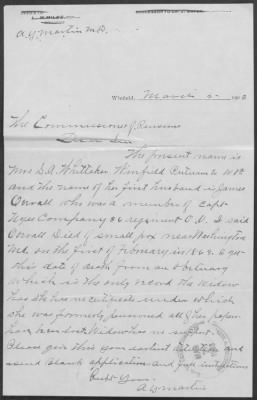 A. G. Martin M.D.
Winfield, March 2- 190
The Commissioner of Pensions
Dear Sir
The present name is
Mrs S.A. Whittaker Winfield Putnam Co W.Va
and the name of her first husband is James
Orvall who was a member of Capt
Tyer Company 86 regiment O.V.I. said
Orvall Died of Small pox near Washington
Md. on the first of February in 1863. I get
this date of death from an obituary
which is the only record the widow
has she has no certificate under which
she was formerly pensioned all of her papers
have been lost. Widow has no support.
Please give this your earliest attention and
send blank application and full instructions
Respt Yours
A G Martin